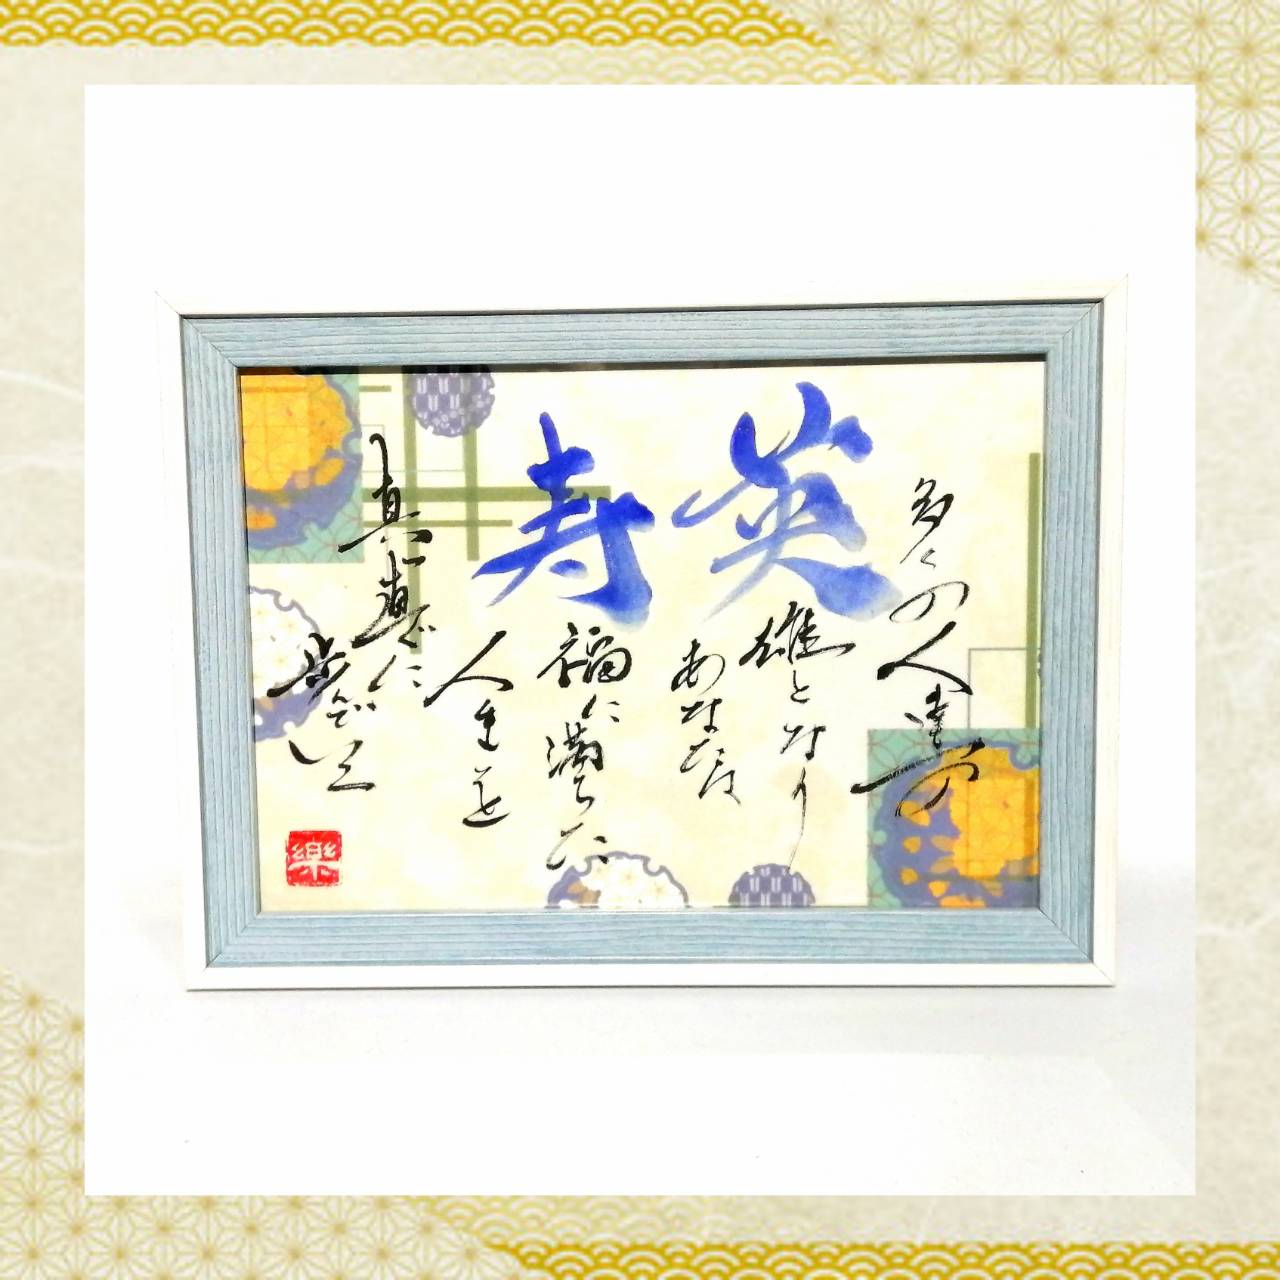 多くの人達の
英
雄となり
あなたは
寿
福に満ちた
人生を
真直ぐに
樂